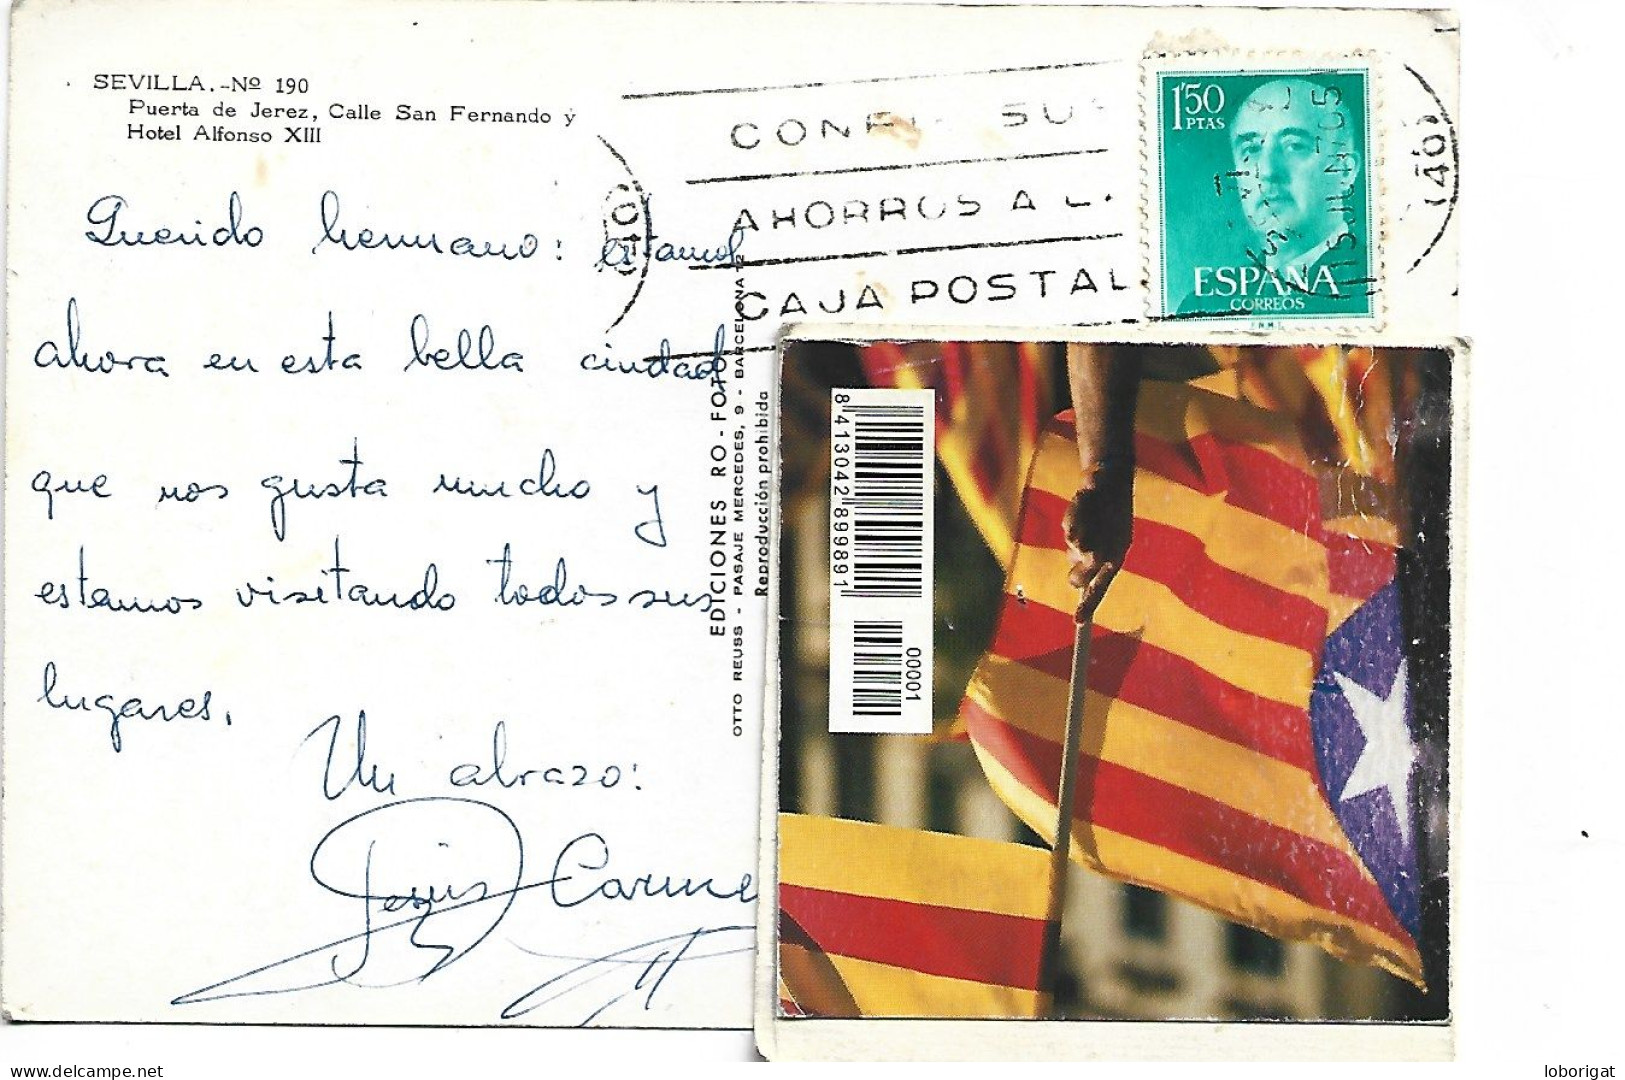 SEVILLA.-Nº 190
Puerta de Jerez, Calle San Fernando y
Hotel Alfonso XIII
Querido hermano: estamos
ahora en esta bella ciudad
que nos gusta mucho y
estamos visitando todos sus
lugares.
Un abrazo:
Jesús Carme
EDICIONES RO-FOTO
OTTO REUSS - PASAJE MERCEDES, 9 - BARCELONA-12
Reproducción prohibida
SU
AHORROS A L
CAJA POSTAL
1'50
PTAS
ESPAÑA
CORREOS
8 413042 899891
00001
loborigat